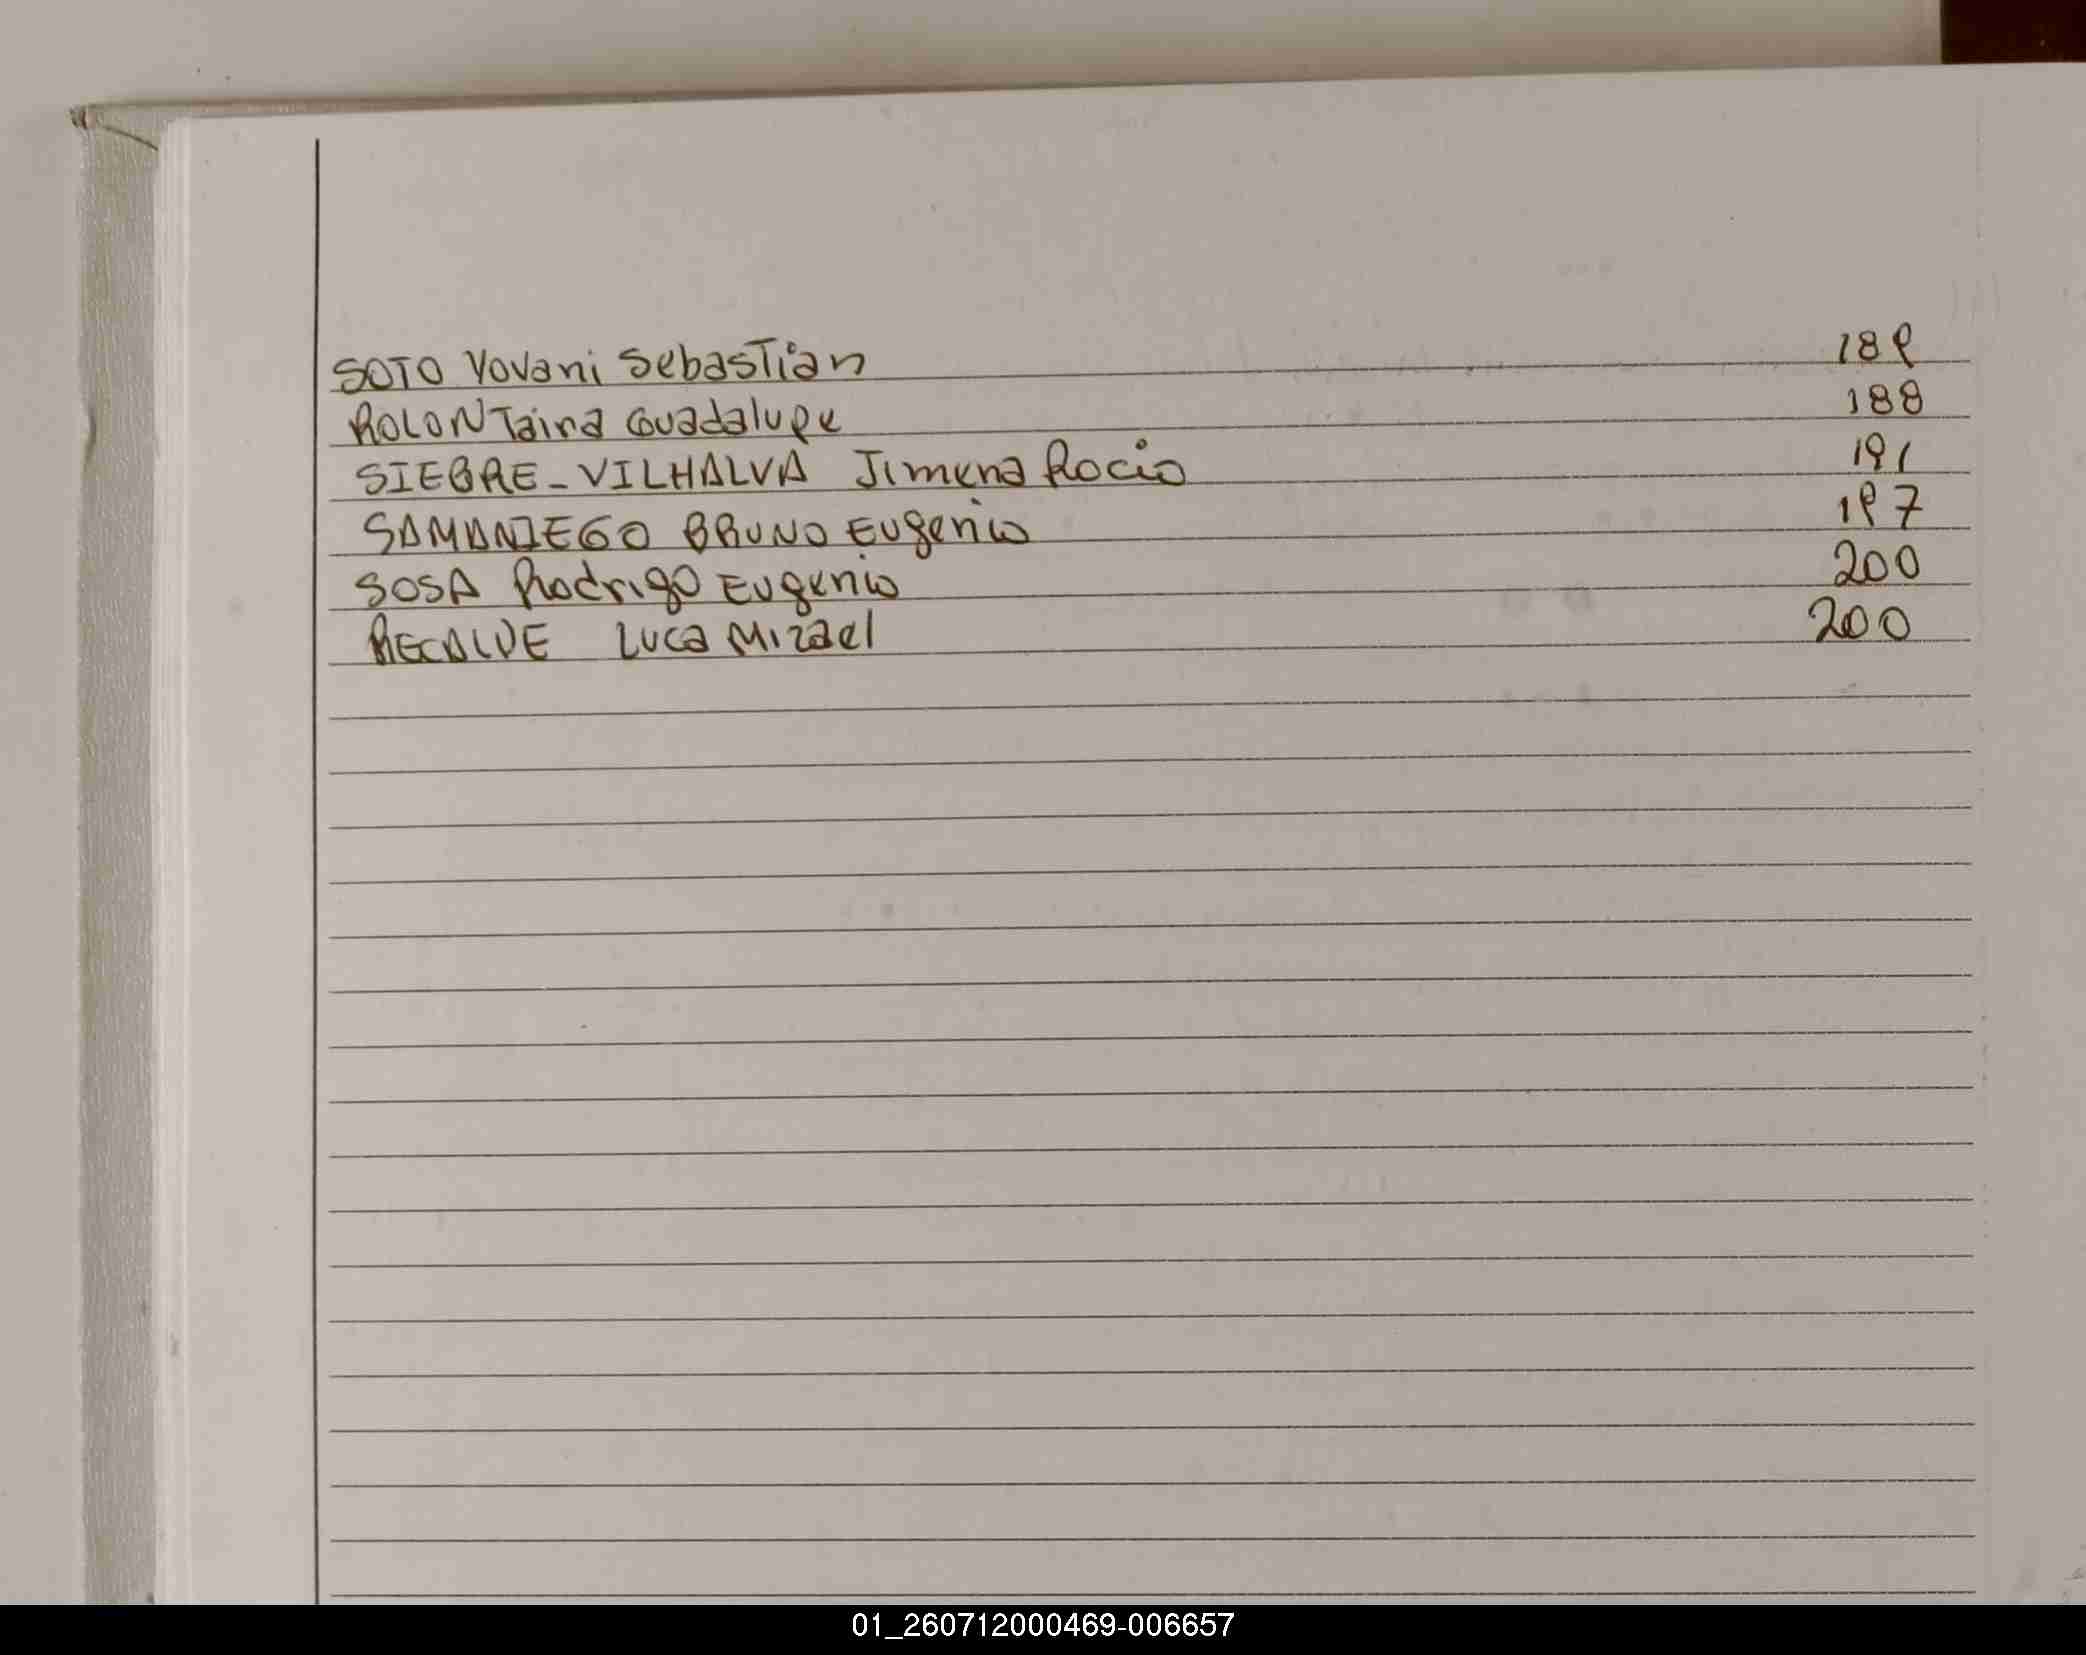 SOTO Yovani Sebastian 189
ROLON Taina Guadalupe 188
SIEBRE-VILHALVA Jimena Rocio 191
SAMANIEGO BRUNO Eugenio 197
SOSA Rodrigo Eugenio 200
RECALDE Luca Mizael 200
01_260712000469-006657